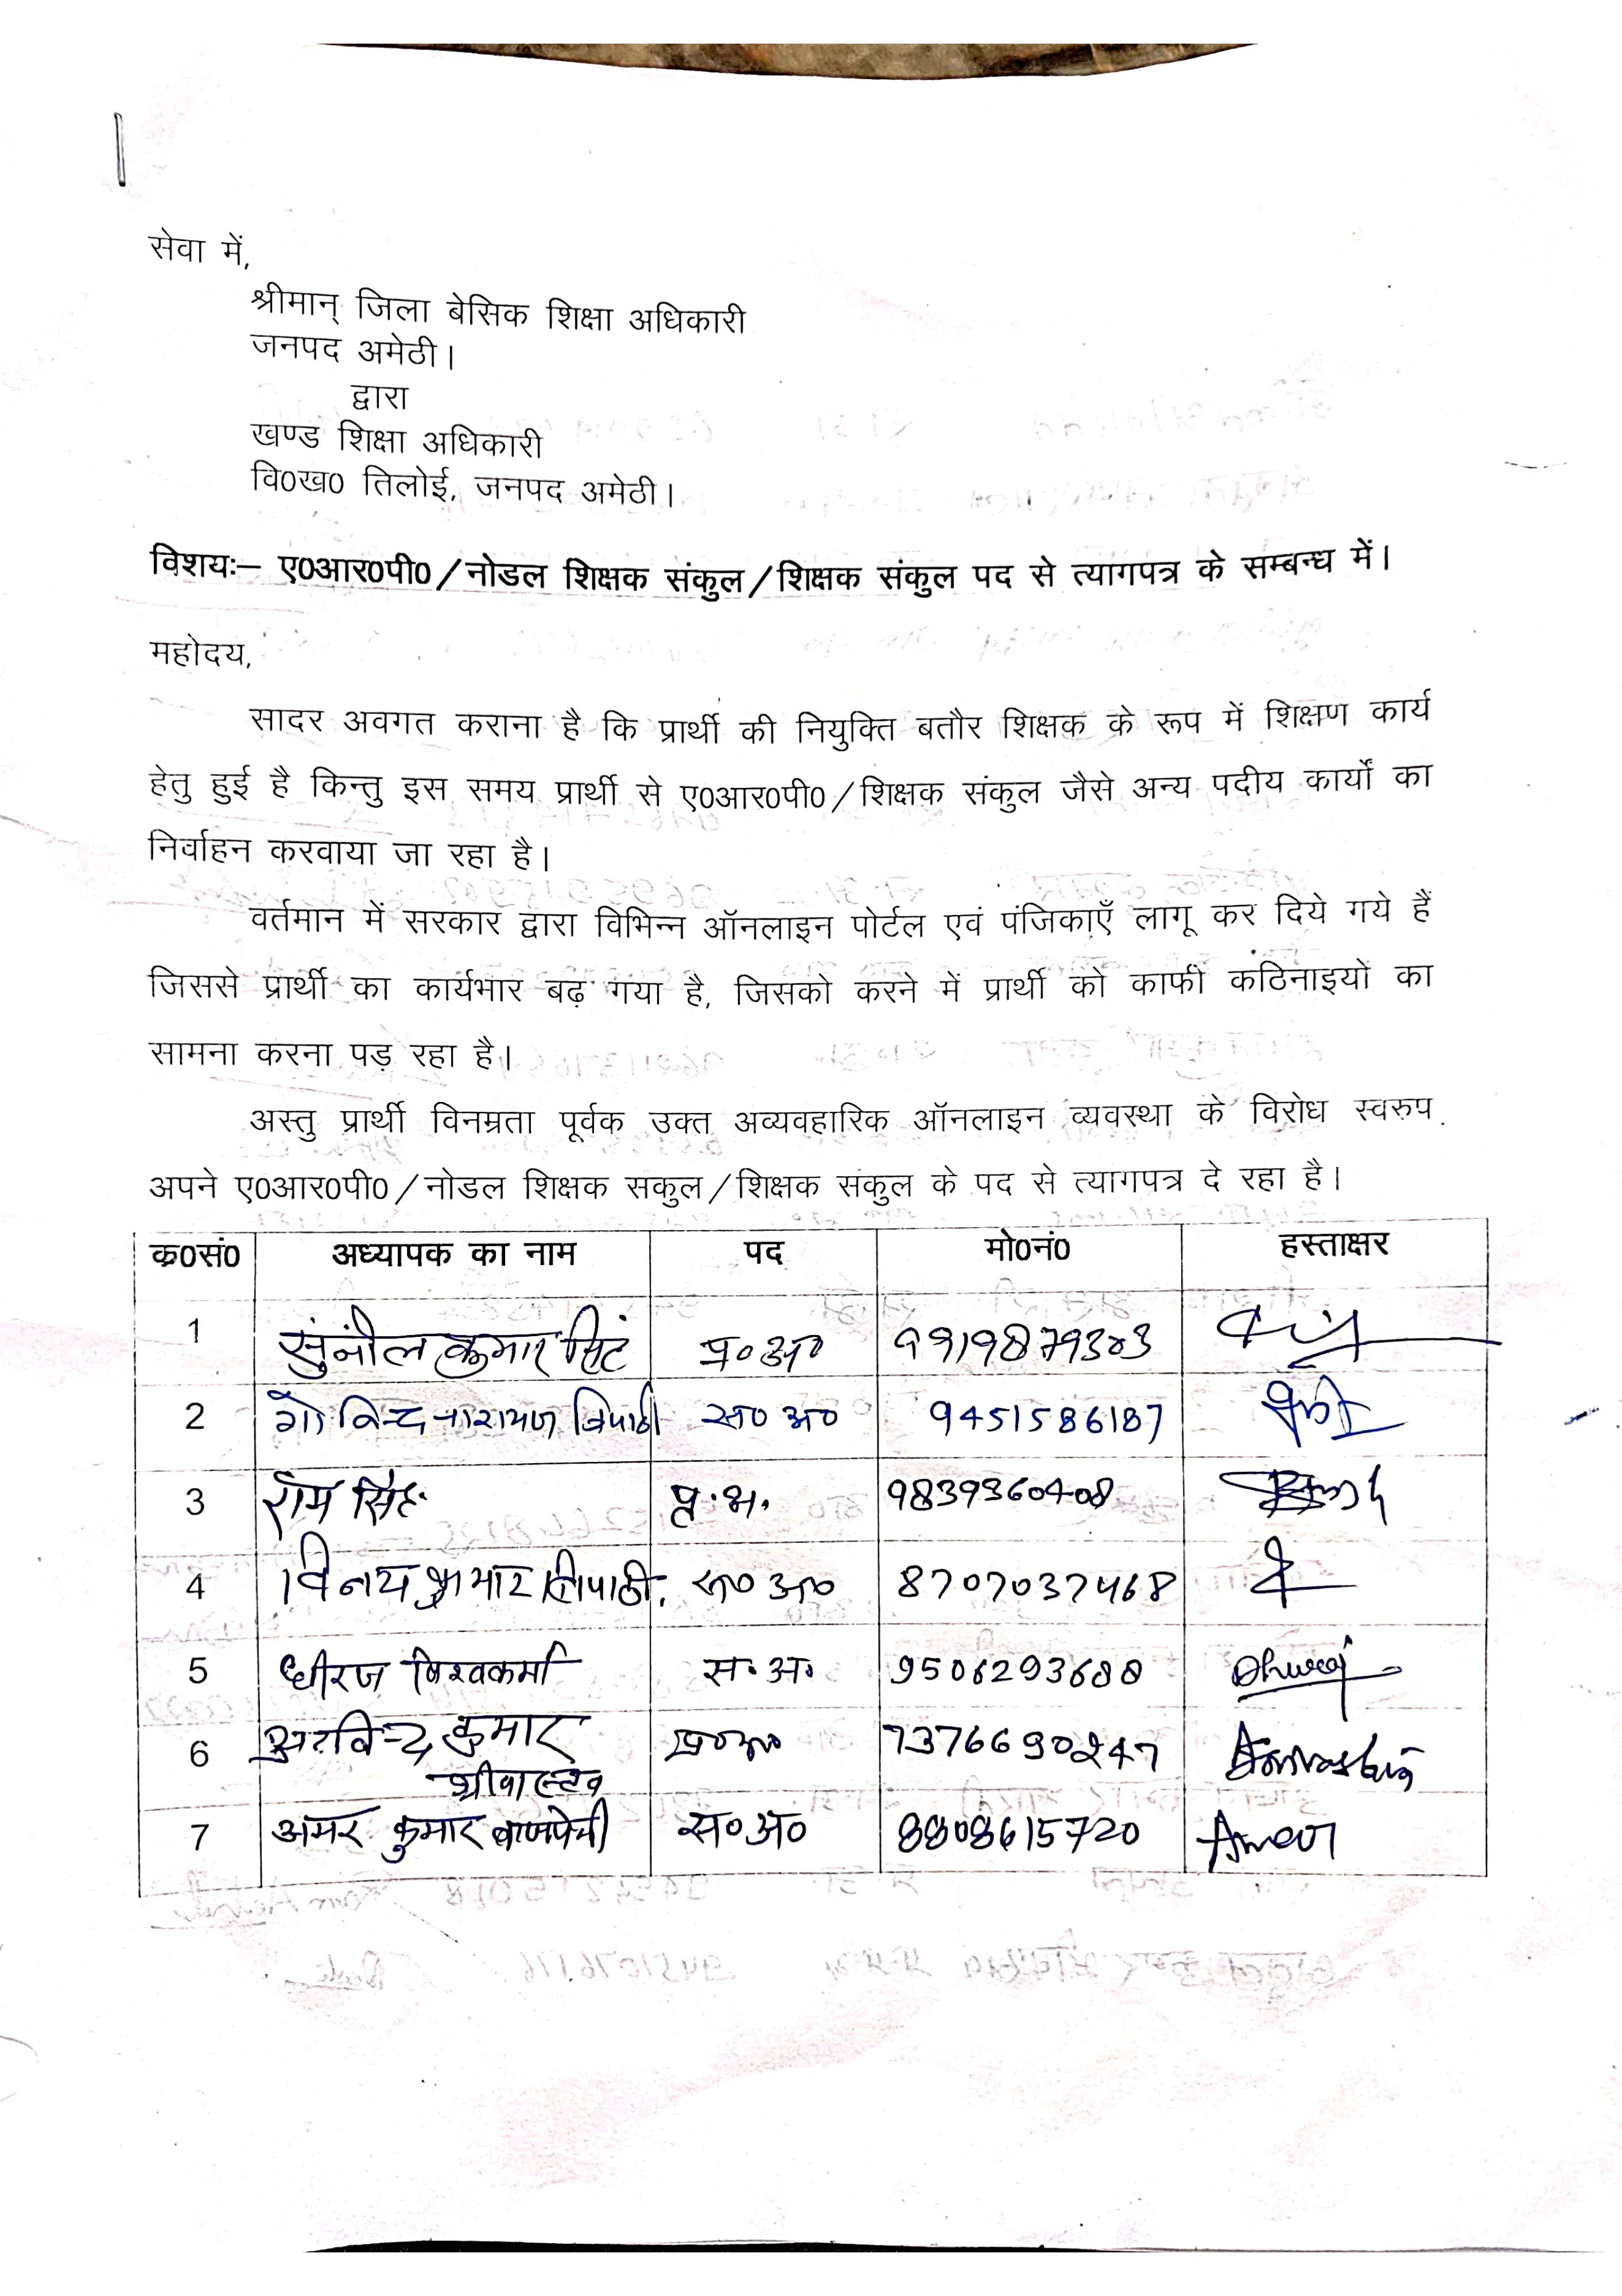 सेवा में,
श्रीमान् जिला बेसिक शिक्षा अधिकारी
जनपद अमेठी।
द्वारा
खण्ड शिक्षा अधिकारी
वि0ख0 तिलोई, जनपद अमेठी।
विशयः– ए0आर0पी0/नोडल शिक्षक संकुल/शिक्षक संकुल पद से त्यागपत्र के सम्बन्ध में।
महोदय,
सादर अवगत कराना है कि प्रार्थी की नियुक्ति बतौर शिक्षक के रूप में शिक्षण कार्य
हेतु हुई है किन्तु इस समय प्रार्थी से ए0आर0पी0/शिक्षक संकुल जैसे अन्य पदीय कार्यों का
निर्वाहन करवाया जा रहा है।
वर्तमान में सरकार द्वारा विभिन्न ऑनलाइन पोर्टल एवं पंजिकाएँ लागू कर दिये गये हैं
जिससे प्रार्थी का कार्यभार बढ़ गया है, जिसको करने में प्रार्थी को काफी कठिनाइयों का
सामना करना पड़ रहा है।
अस्तु प्रार्थी विनम्रता पूर्वक उक्त अव्यवहारिक ऑनलाइन व्यवस्था के विरोध स्वरुप
अपने ए0आर0पी0/नोडल शिक्षक सकुल/शिक्षक संकुल के पद से त्यागपत्र दे रहा है।
क्र0सं0 अध्यापक का नाम पद मो0नं0 हस्ताक्षर
1 सुनील कुमार सिंह प्र०अ० 9919879303
2 गोविन्द नारायण त्रिपाठी स० अ० 9451586187
3 राम सिंह प्र.अ. 9839360408
4 विनय कुमार त्रिपाठी स० अ० 8707037468
5 धीरज विश्वकर्मा स.अ. 9506293688 Dhuraj
6 अरविन्द कुमार श्रीवास्तव 7376690247
7 अमर कुमार बाजपेयी स०अ० 8808615720 Amar